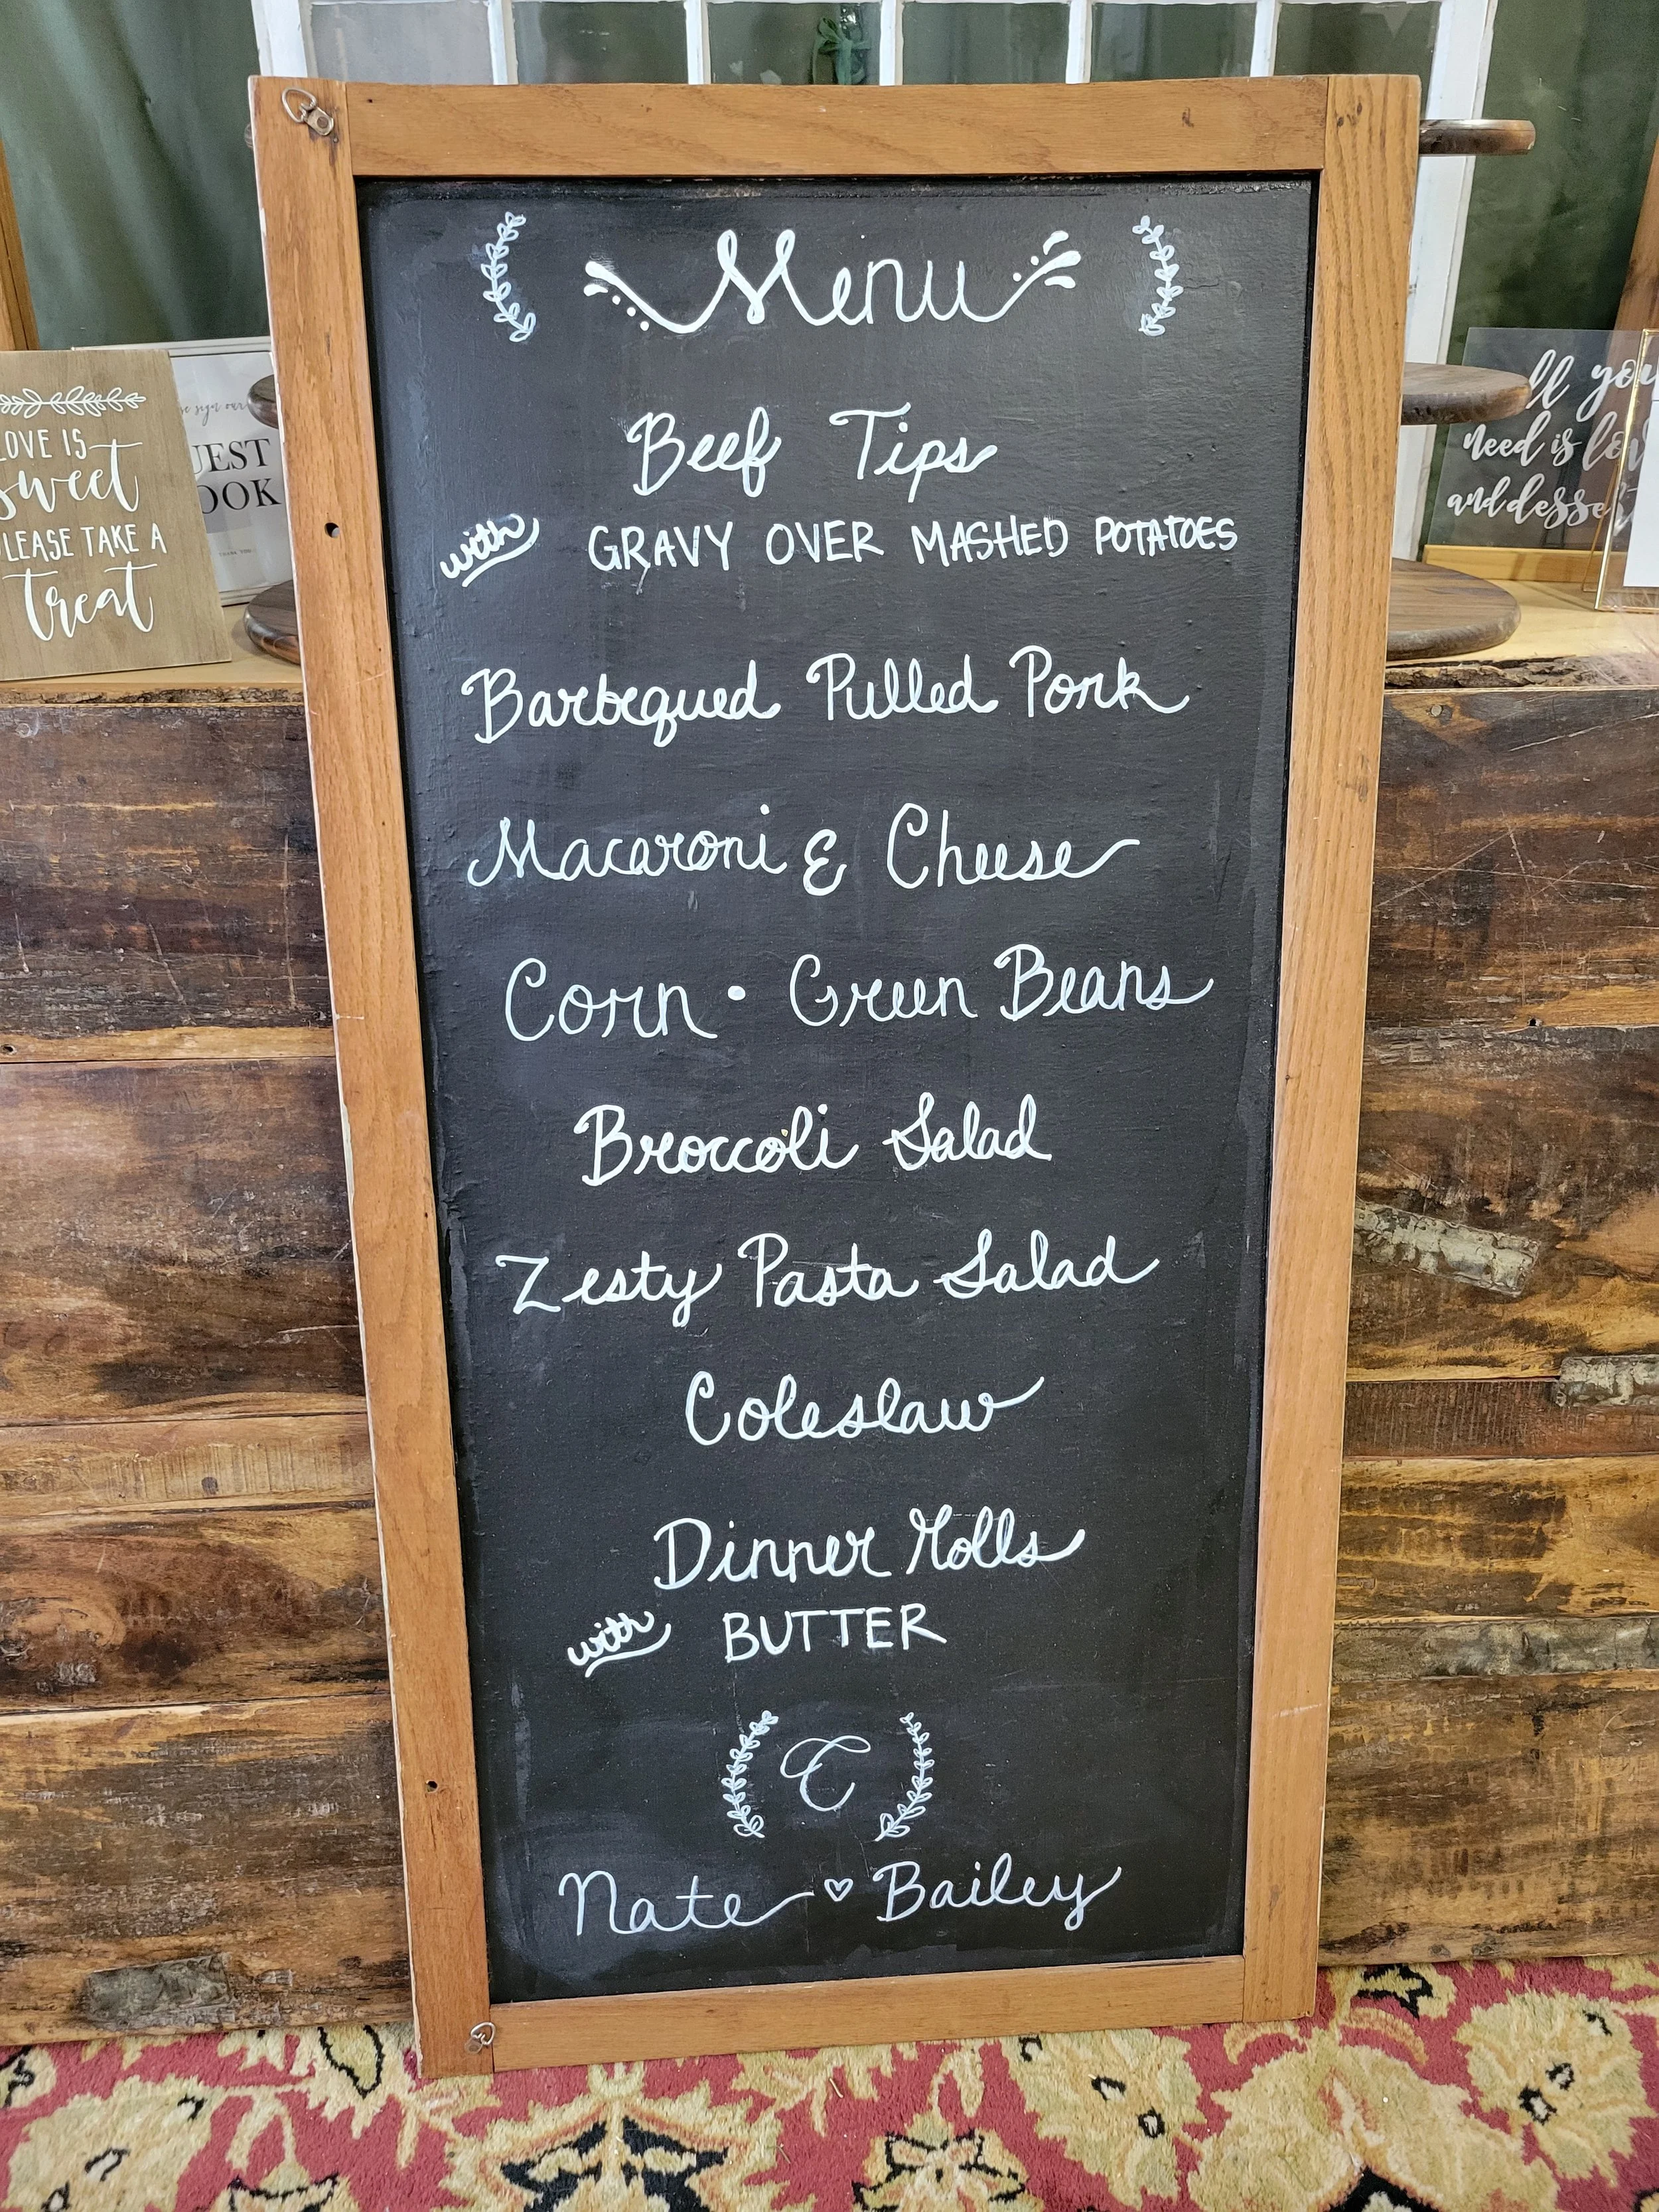 Menu
Beef Tips
with GRAVY OVER MASHED POTATOES
Barbequed Pulled Pork
Macaroni & Cheese
Corn • Green Beans
Broccoli Salad
Zesty Pasta Salad
Coleslaw
Dinner Rolls
with BUTTER
C
Nate ♡ Bailey
LOVE IS
sweet
PLEASE TAKE A
treat
sign our
UEST
OOK
ll you
need is lov
and desse